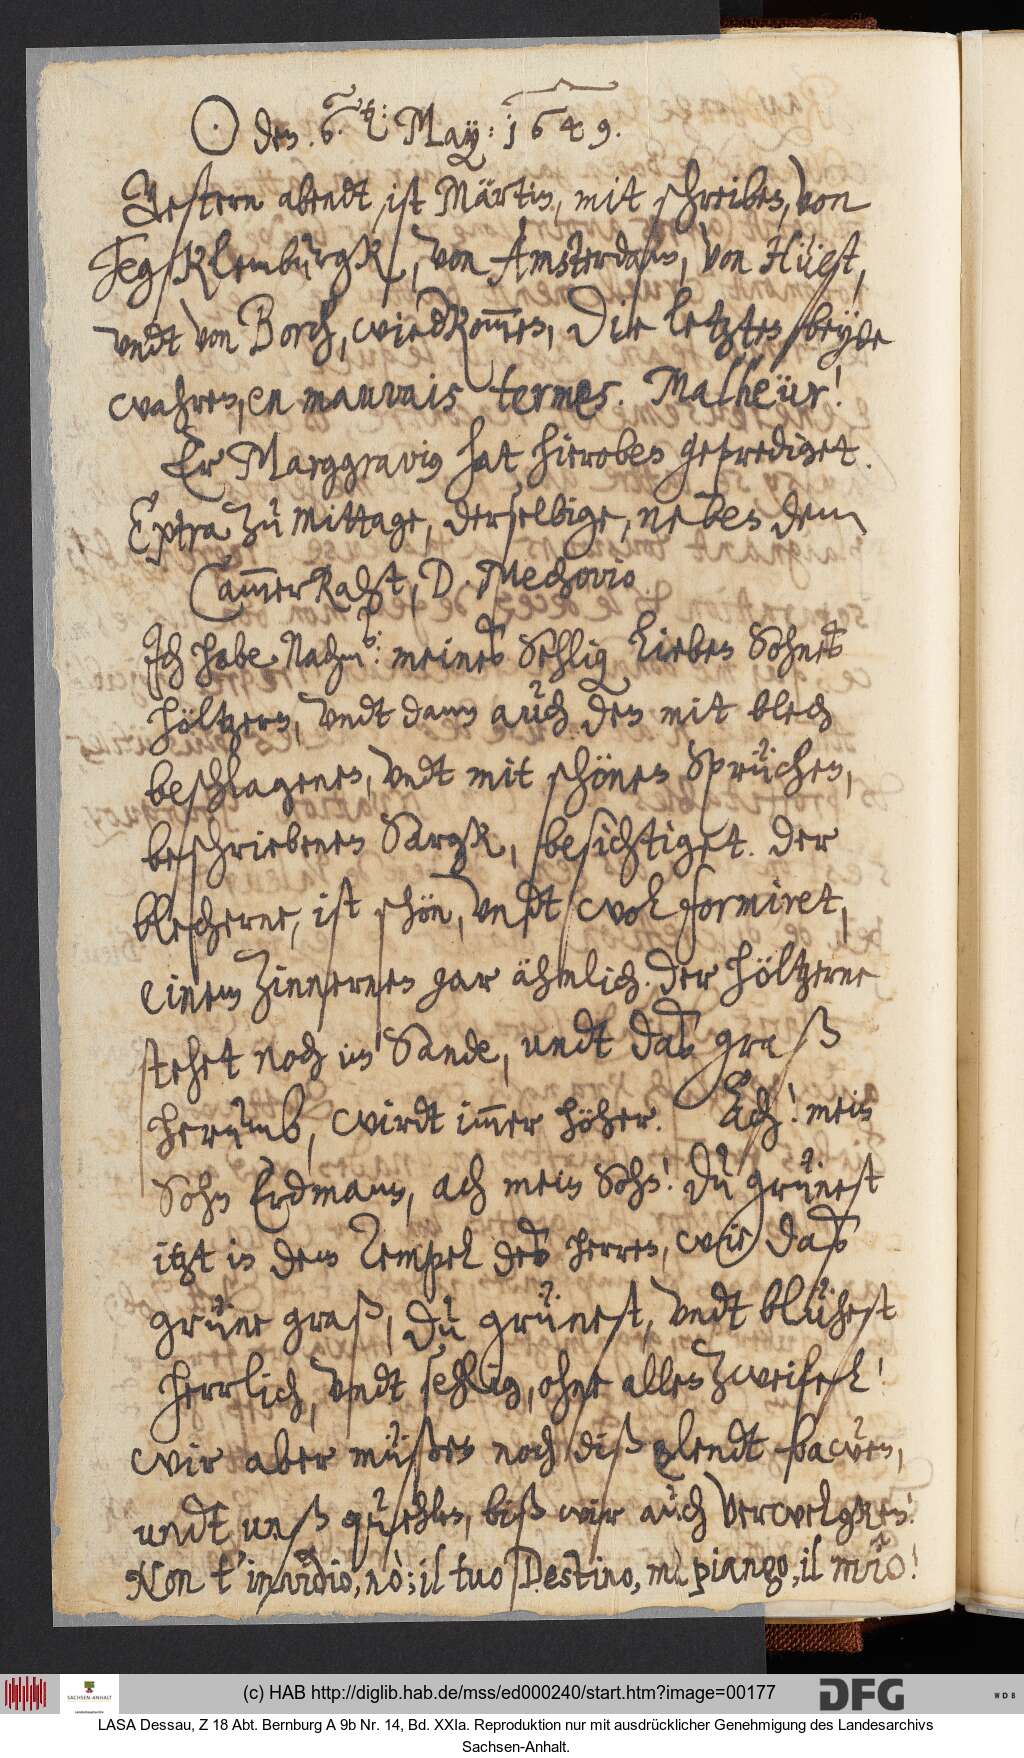 ☉ den. 6. t: May: 1649.
Gestern abendt, ist Märtin, mit schreiben, von
Tegklemburgk, von Amsterdam, von Hüest,
undt von Borch, wiedkom̅en, Die letzten beyde
wahren, en mauvais termes. Malheür!
Er Marggravius hat hieroben geprediget.
Extra zu Mittage, derselbige, neben dem
Cam̅erRaht, D. Mechovio
Ich habe Nachmts: meines Sehlig lieben Sohnes
höltzern, undt dann auch den mit blech
beschlagenen, undt mit schönen Sprüchen,
beschriebenen Sargk, besichtiget. Der
blecherne, ist schön, undt wol formiret,
einem Zinnernen gar ähnlich. Der höltzerne
stehet noch im Sande, undt daß graß
herumb, wirdt im̅er höher. Ach! mein
Sohn Erdmann, ach mein Sohn! Du grünest
itzt in dem Tempel des herren, wie daß
grüne graß, Du grünest, undt blühest
herrlich, undt sehlig, ohne allen Zweifel!
wir aber müßen noch diß elendt bawen,
undt unß quehlen, biß wir auch verwelgken!
Non t'invidio, nò; il tuo Destino, mà piango, il mio!
(c) HAB http://diglib.hab.de/mss/ed000240/start.htm?image=00177
SACHSEN-ANHALT
DFG
WDB
LASA Dessau, Z 18 Abt. Bernburg A 9b Nr. 14, Bd. XXIa. Reproduktion nur mit ausdrücklicher Genehmigung des Landesarchivs
Sachsen-Anhalt.